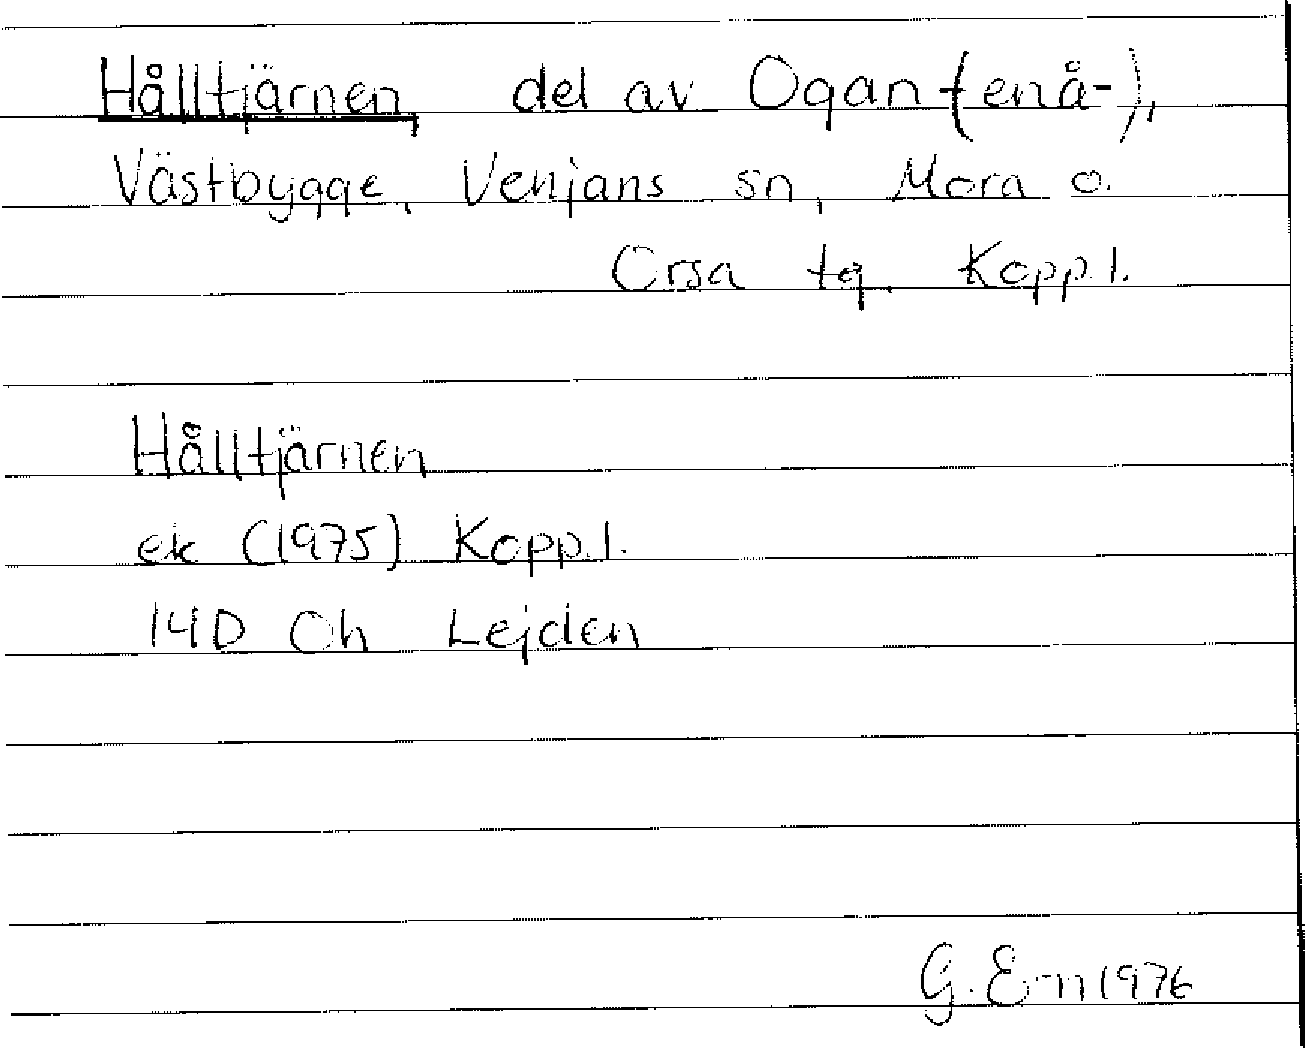 Hålltjärnen, del av Ogan (enå-),
Västbygge, Venjans sn, Mora o.
Orsa tg. Kopp. l.
Hålltjärnen
ek (1975) Kopp. l.
14D Oh Lejden
G. Ern 1976